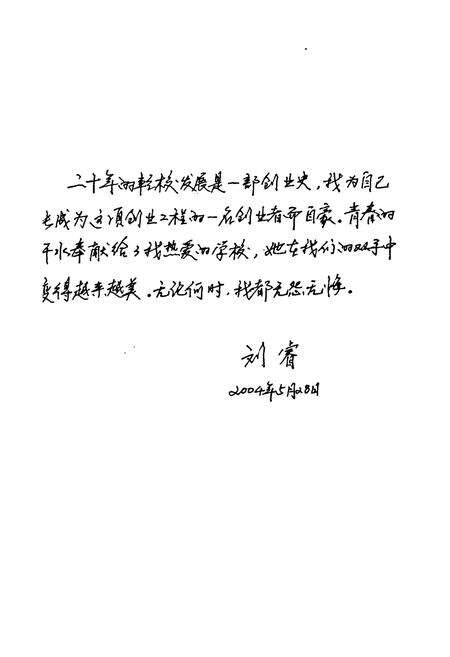 二十年的轻校发展是一部创业史,我为自己
能成为这项创业工程的一名创业者而自豪。青春的
汗水奉献给了我热爱的学校,她在我们的双手中
变得越来越美。无论何时,我都无怨无悔。
刘睿
2004年5月28日